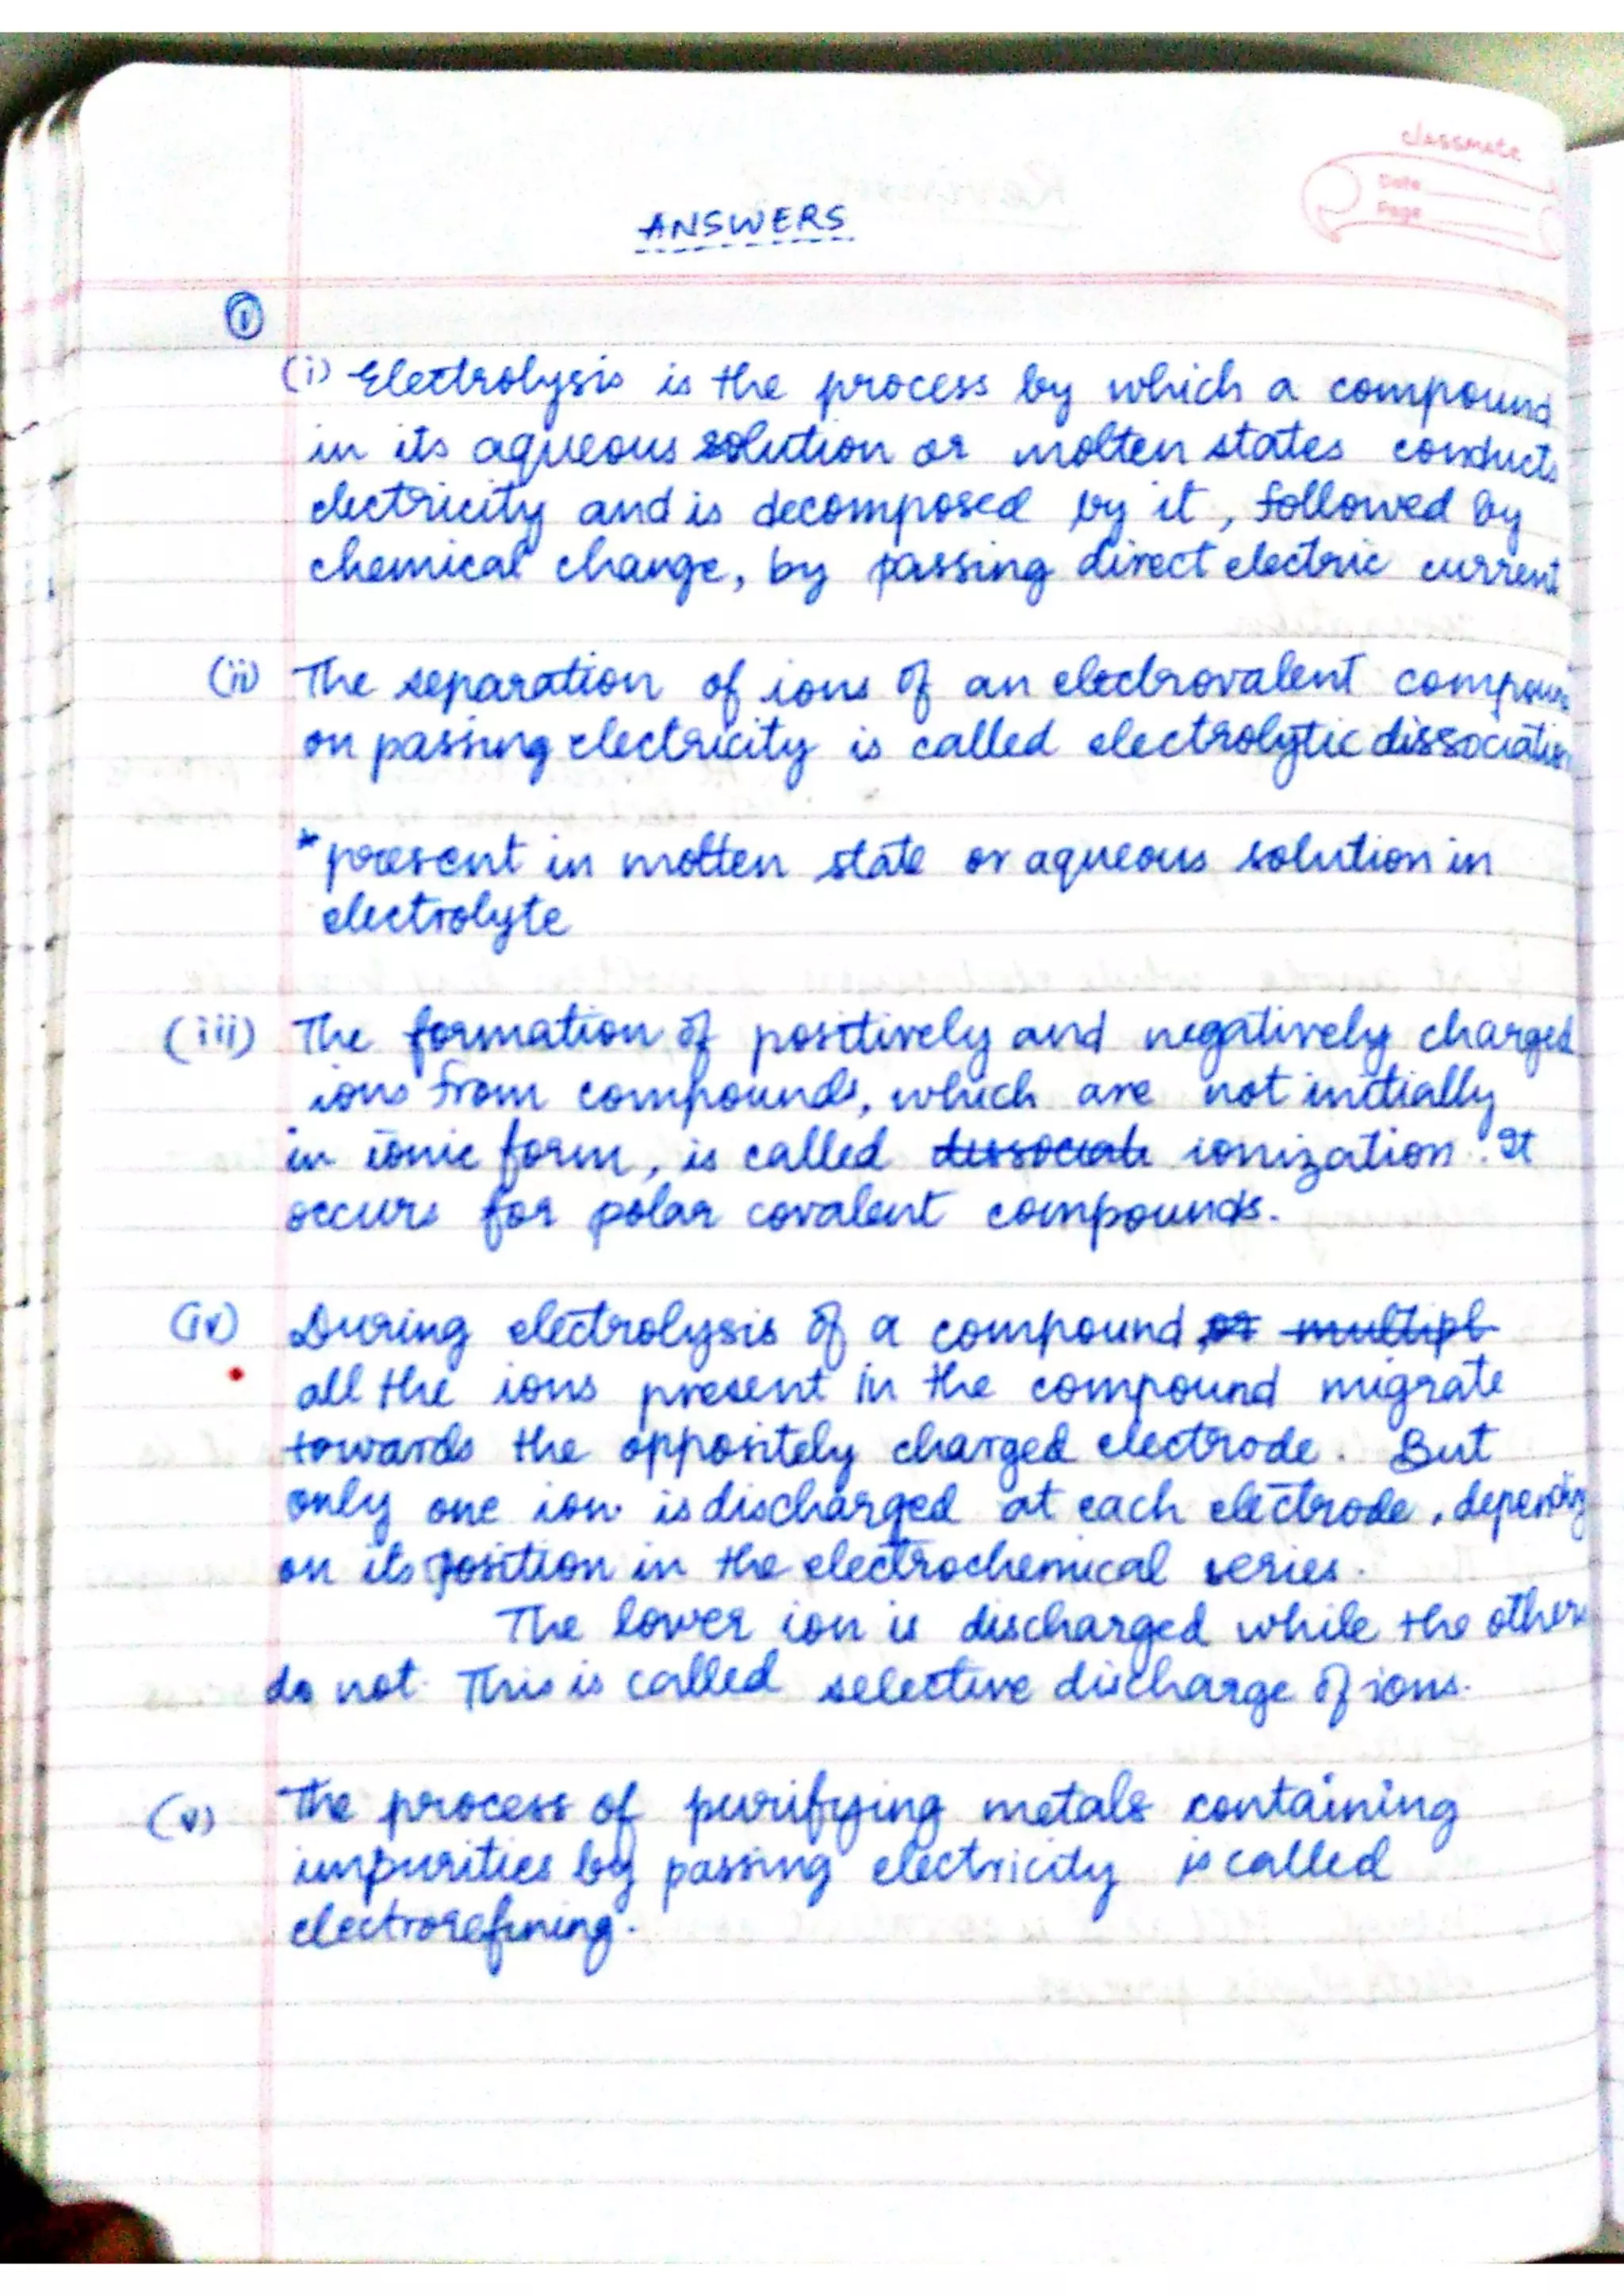 classmate
Date
Page
ANSWERS
①
(i) Electrolysis is the process by which a compound
in its aqueous solution or molten states conducts
electricity and is decomposed by it, followed by
chemical change, by passing direct electric current
(ii) The separation of ions of an electrovalent compoun
on passing electricity is called electrolytic dissociation
*present in molten state or aqueous solution in
electrolyte
(iii) The formation of positively and negatively charged
ions from compounds, which are not initially
in ionic form, is called dissociate ionization. It
occurs for polar covalent compounds.
(iv) During electrolysis of a compound, or multipl
all the ions present in the compound migrate
towards the oppositely charged electrode. But
only one ion is discharged at each electrode, depending
on its position in the electrochemical series.
The lower ion is discharged while the others
do not. This is called selective discharge of ions.
(v) The process of purifying metals containing
impurities by passing electricity is called
electrorefining.